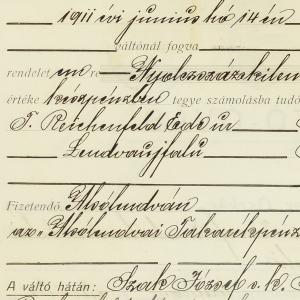 1911 évi junius hó 14 én
váltónál fogva
rendelet em re Nyolczszázkilen
értéke készpénzben tegye számolásba tudó
T. Reichenfeld Ede ur
Lendvaujfalu
Fizetendő Alsólendván
az "Alsólendvai Takarékpénz
A váltó hátán: Szak József s. k.